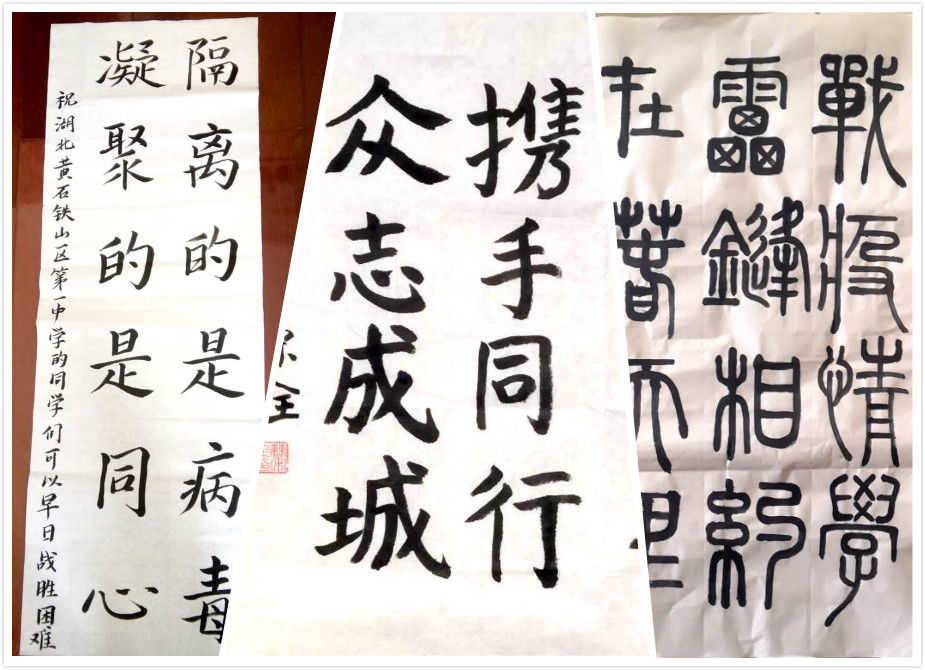 隔离的是病毒
凝聚的是同心
祝湖北黄石铁山区第一中学的同学们可以早日战胜困难
携手同行
众志成城
戰疫情學
雷鋒相約
在春天里